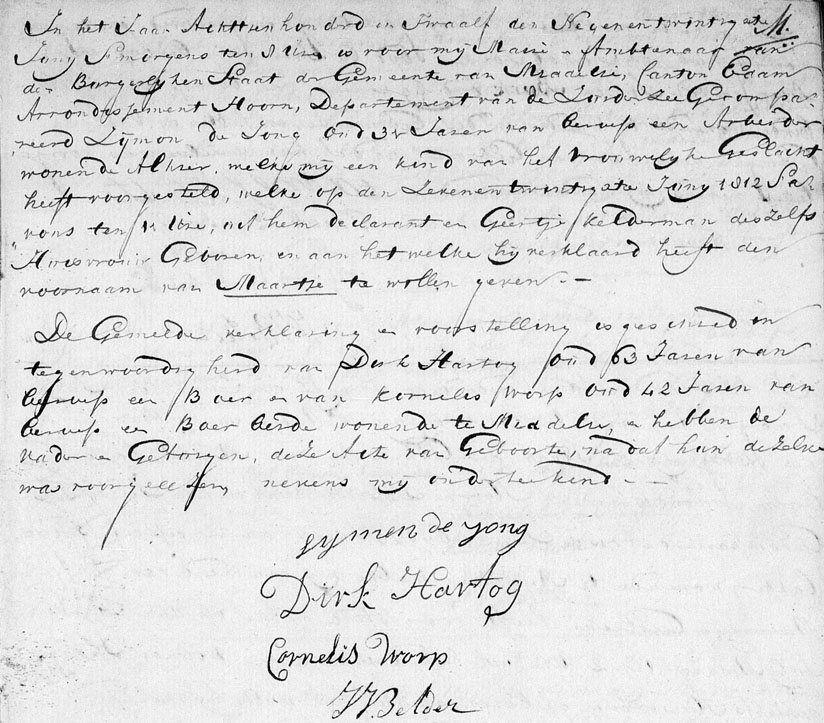 M.
In het Jaar Achttienhondrd en Twaalf den Negenentwintigste
Juny Smorgens ten 8 Ure is voor my Maire en Ambtenaar van
den Burgerlyken Staat der Gemeente van Middelie, Canton Edam
Arrondissement Hoorn, Departement van de Zuider Zee Gecompa-
reerd Zijmon de Jong Oud 34 Jaren van beroep een Arbeider
wonende Alhier, welke my een kind van het Vrouwelyke Geslacht
heeft voorgesteld, welke op den Zevenentwintigste Juny 1812 Sa
vons ten Ure, uit hem declarant en Geertje Kelderman deszelfs
Huisvrouw Geboren, en aan het welke hy verklaard heeft den
voornaam van Maartje te willen geven. —
De Gemelde verklaring en voorstelling is geschied in
tegenwoordigheid van Dirk Hartog Oud 63 Jaren van
beroep een Boer en van Kornelis Worp Oud 42 Jaren van
beroep een Boer beide wonende te Middelie, en hebben de
vader en Getuigen, deze Acte van Geboorte, na dat hun dezelve
was voorgelezen, nevens my ondertekend. —
zymen de yong
Dirk Hartog
Cornelis Worp
Belder